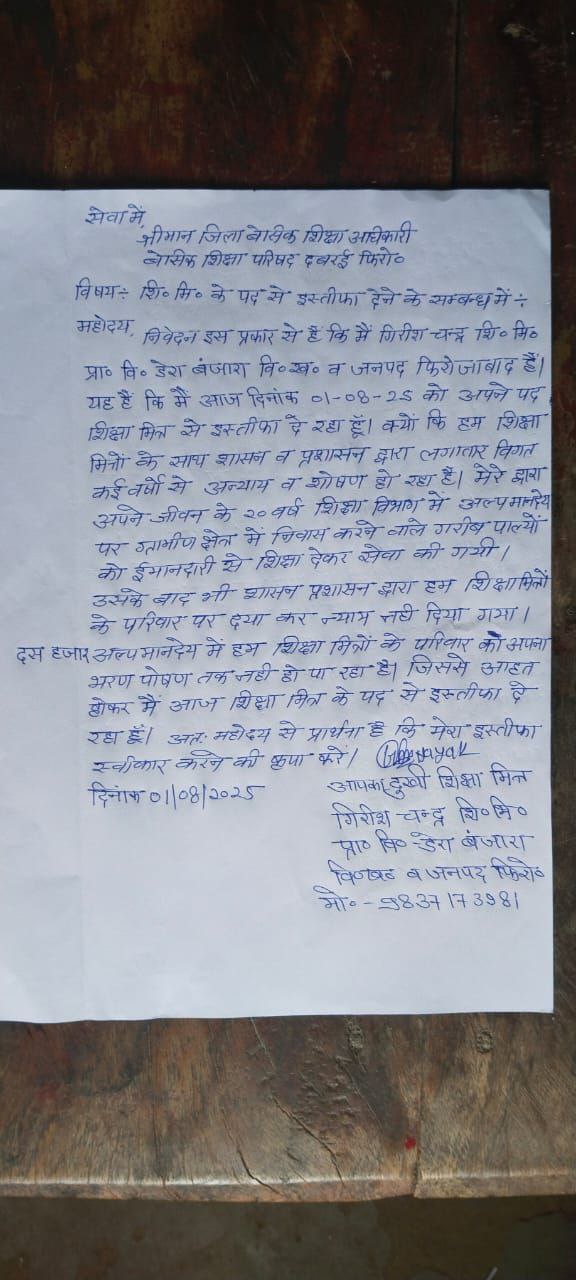 सेवा में,
श्रीमान जिला बेसिक शिक्षा अधिकारी
बेसिक शिक्षा परिषद दबरई फिरो०
विषय÷ शि० मि० के पद से इस्तीफा देने के सम्बन्ध में ÷
महोदय,
निवेदन इस प्रकार से है कि मैं गिरीश चन्द्र शि० मि०
प्रा० वि० डेरा बंजारा वि० ख० व जनपद फिरोजाबाद हैं।
यह है कि मैं आज दिनांक 01-08-25 को अपने पद
शिक्षा मित्र से इस्तीफा दे रहा हूँ। क्यों कि हम शिक्षा
मित्रों के साथ शासन व प्रशासन द्वारा लगातार विगत
कई वर्षो से अन्याय व शोषण हो रहा है। मेरे द्वारा
अपने जीवन के २० वर्ष शिक्षा विभाग में अल्पमानदेय
पर ग्रामीण क्षेत्र में निवास करने वाले गरीब पाल्यों
को ईमानदारी से शिक्षा देकर सेवा की गयी।
उसके बाद भी शासन प्रशासन द्वारा हम शिक्षामित्रों
के परिवार पर दया कर न्याय नही दिया गया।
दस हजार अल्पमानदेय में हम शिक्षा मित्रों के परिवार को अपना
भरण पोषण तक नही हो पा रहा है। जिससे आहत
होकर मैं आज शिक्षा मित्र के पद से इस्तीफा दे
रहा हूँ। अतः महोदय से प्रार्थना है कि मेरा इस्तीफा
स्वीकार करने की कृपा करें।
दिनांक 01/08/2025
आपका दुखी शिक्षा मित्र
गिरीश चन्द्र शि० मि०
प्रा० वि० डेरा बंजारा
वि०ख० व जनपद फिरो०
मो० - 9837173981